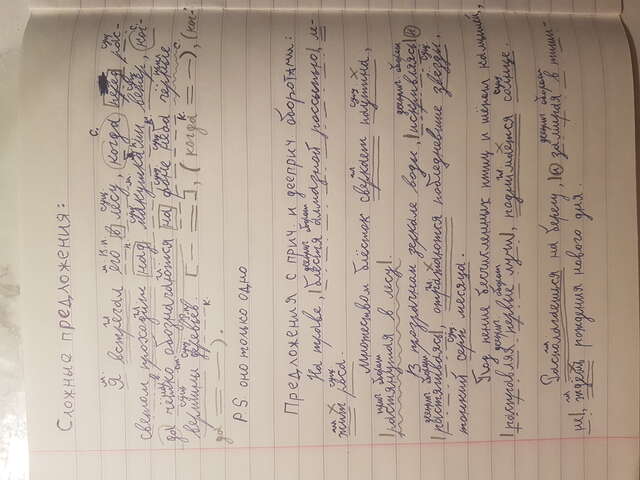 Сложные предложения:
Я встречал его в лесу, когда перед рас-
светом проходил над макушками ветер, ког-
да чётко обозначаются на фоне неба чёрные
вершины деревьев. [— ═], (когда ═ —), (ког-
да — ═).
P S оно только одно
Предложения с прич. и дееприч. оборотами:
дееприч оборот
На траве, |блестя алмазной россыпью|, ле-
жит роса.
Множеством блёсток сверкает паутина,
прич оборот
|растянутая в лесу|.
дееприч оборот
В прозрачном зеркале воды, |искривляясь| и
дееприч оборот
|растягиваясь|, отражаются побледневшие звёзды.
тонкий серп месяца.
Под пение бесчисленных птиц и шёпот камышей,
дееприч оборот
|расправляя первые лучи|, поднимается солнце.
дееприч оборот
Располагаешься на берегу, |и замирая в тиши-
не|, ждёшь рождения нового дня.